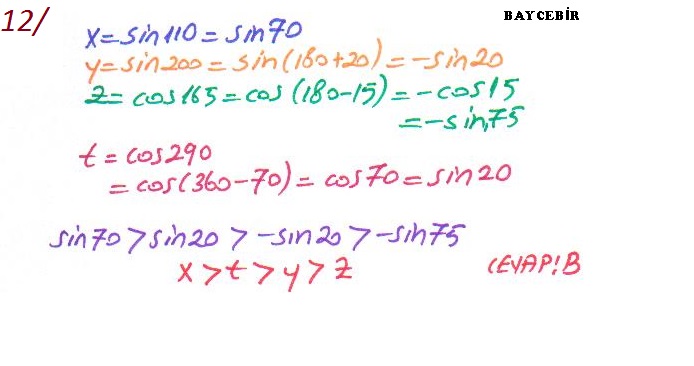 12/
BAYCEBİR
x=sin110=sin70
y=sin200=sin(180+20)=-sin20
z=cos165=cos(180-15)=-cos15
=-sin75
t=cos290
=cos(360-70)=cos70=sin20
sin70>sin20>-sin20>-sin75
x>t>y>z
CEVAP:B